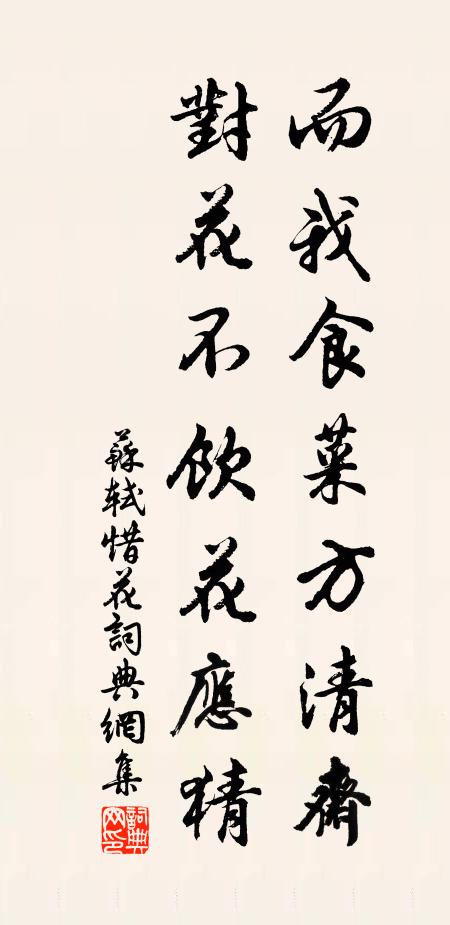 而我食菜方清齋
對花不飲花應猜
蘇軾惜花詞典網集
詞典网印